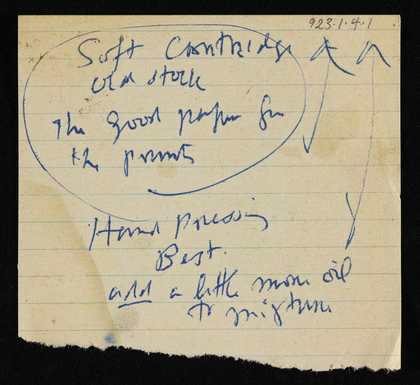 923.1.4.1
Soft Cartridge
old stock
The good paper for
the prints
Hand Pressing
Best.
add a little more oil
to mixture